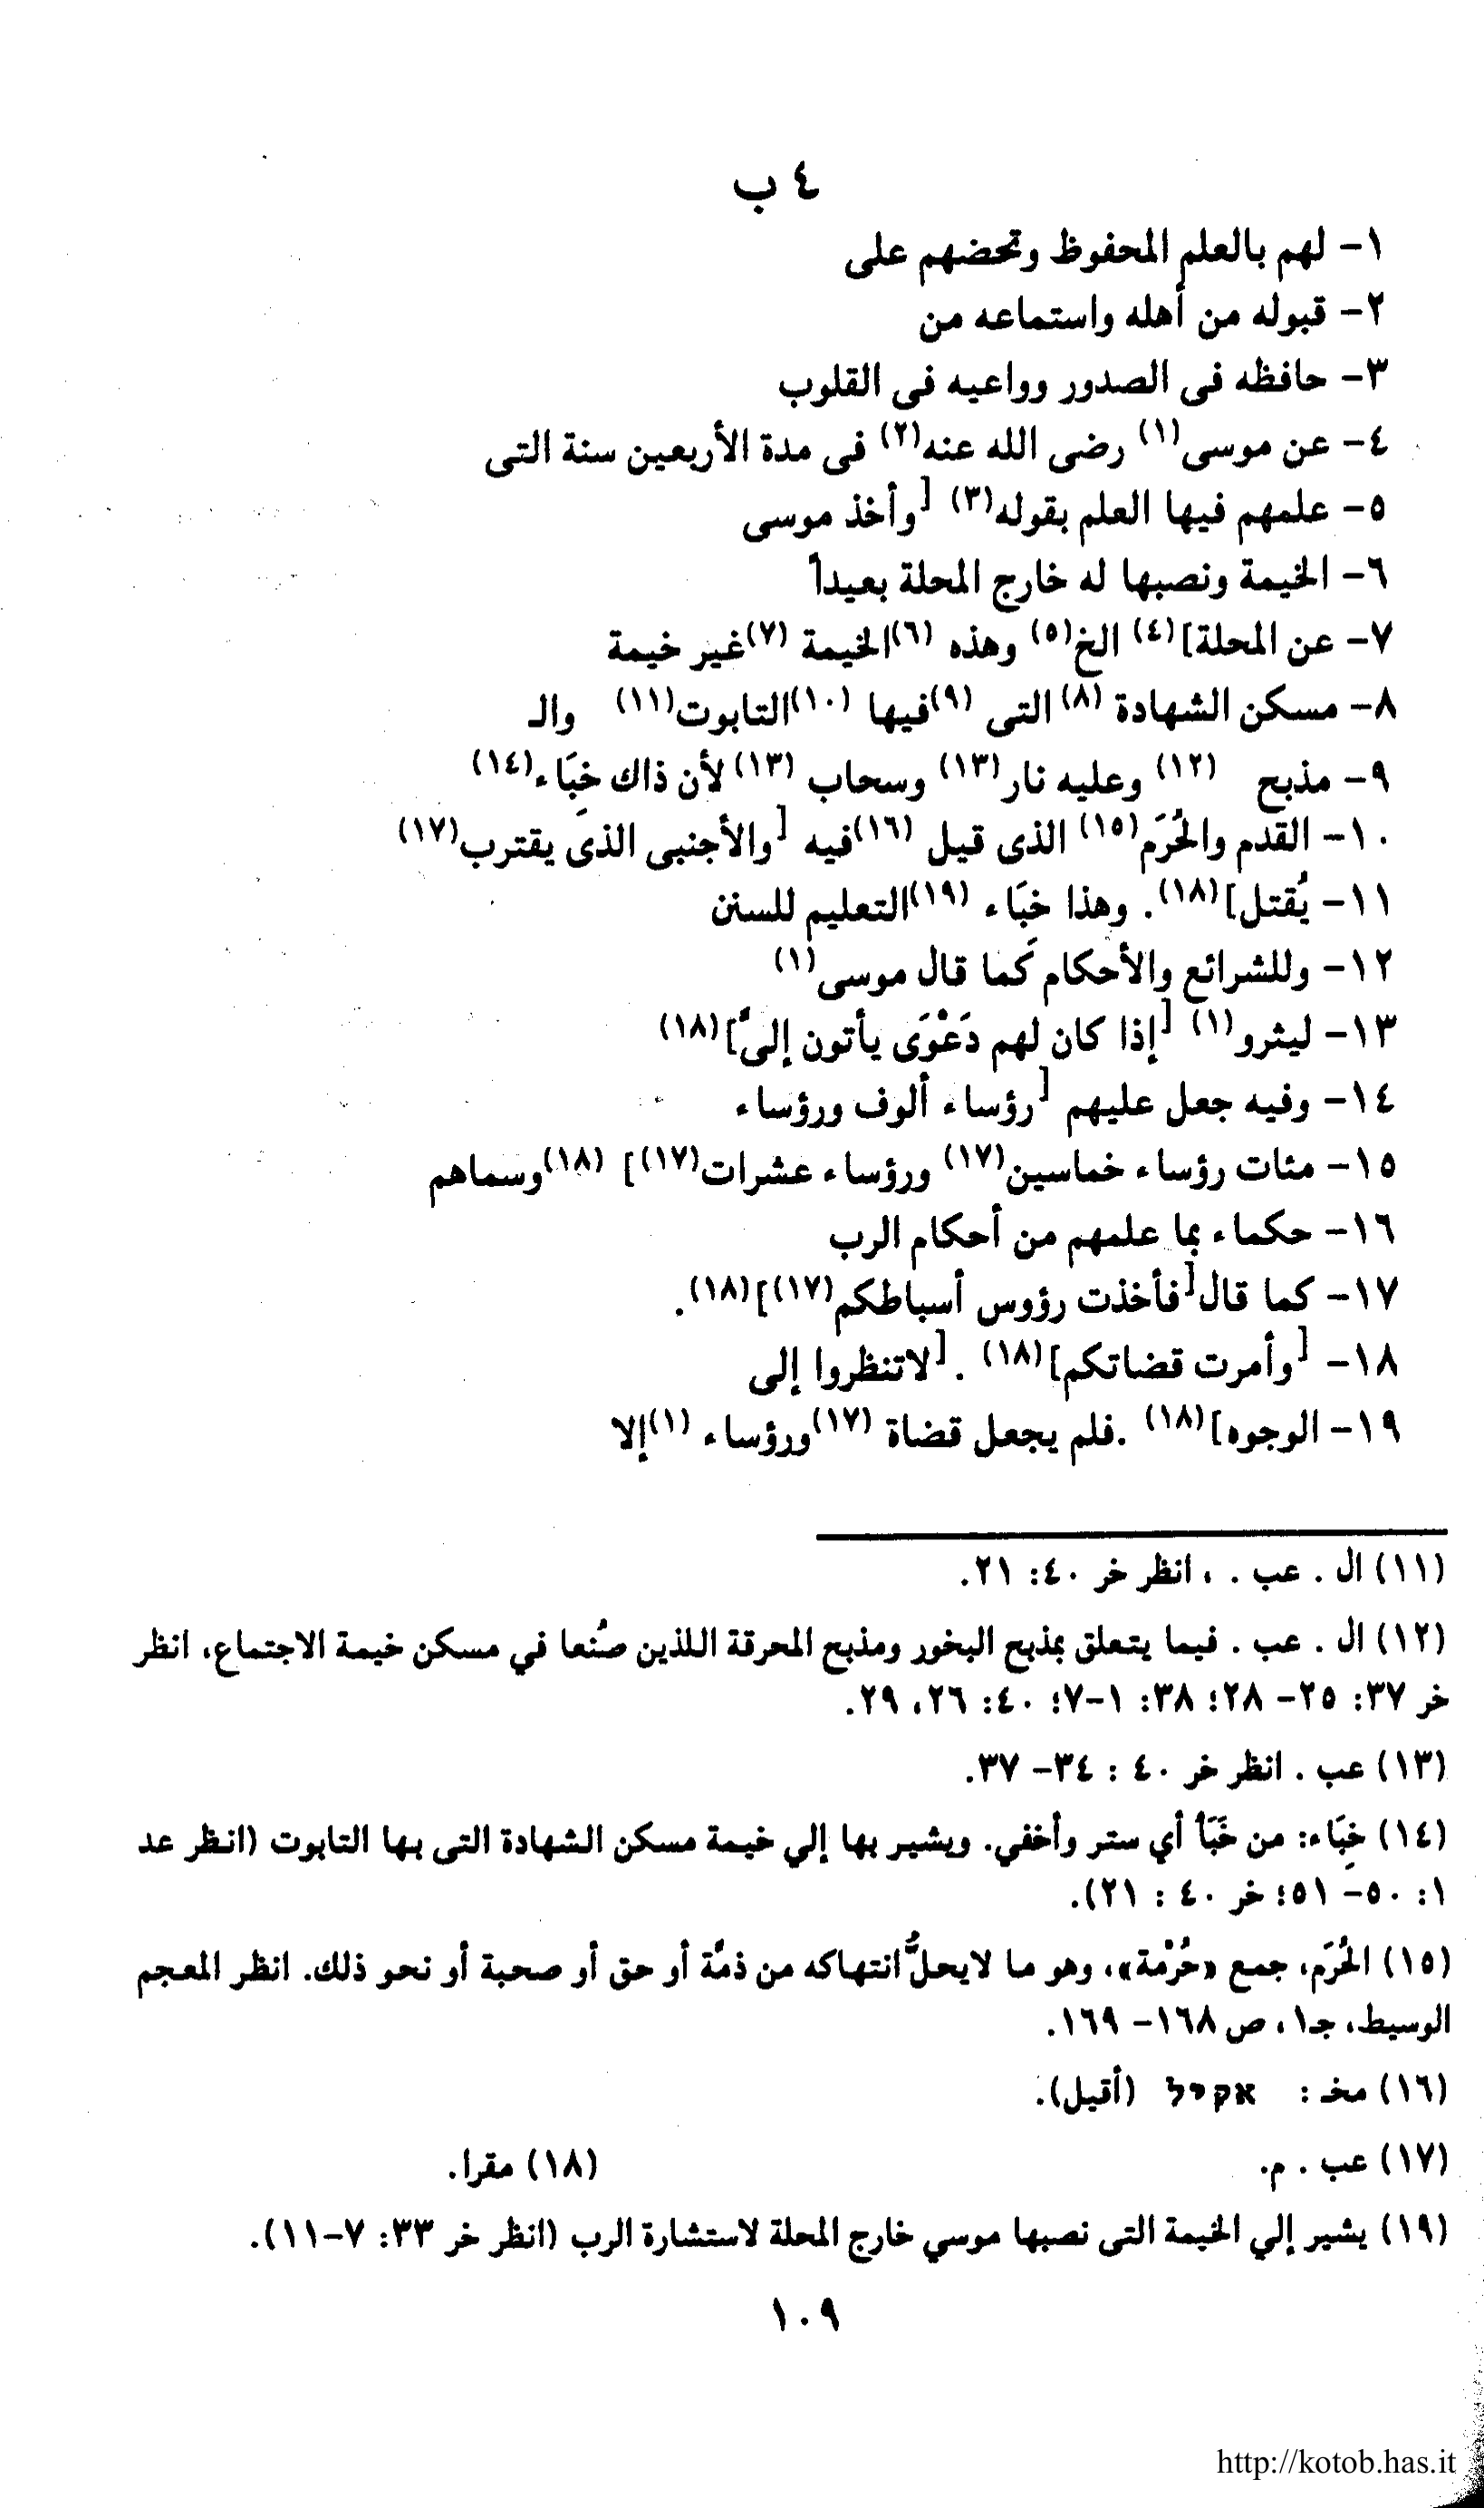 ٤ ب
١- لهم بالعلم المحفوظ وتحضهم على
٢- قبوله من أهله واستماعه من
٣- حافظه فى الصدور وواعيه فى القلوب
٤- عن موسى(١) رضى الله عنه(٢) فى مدة الأربعين سنة التى
٥- علمهم فيها العلم بقوله(٣) [وأخذ موسى
٦- الخيمة ونصبها له خارج المحلة بعيداً
٧- عن المحلة](٤) الخ(٥) وهذه (٦)الخيمة (٧)غير خيمة
٨- مسكن الشهادة (٨)التى (٩)فيها (١٠)التابوت(١١) والـ
٩- مذبح (١٢) وعليه نار(١٣) وسحاب (١٣)لأن ذاك خِبَاء(١٤)
١٠- القدم والحُرَم(١٥) الذى قيل (١٦)فيه [والأجنبى الذى يقترب(١٧)
١١- يُقتل](١٨). وهذا خبَاء (١٩)التعليم للسنن
١٢- وللشرائع والأحكام كَما قال موسى(١)
١٣- ليثرو(١) [إذا كان لهم دَعْوَى يأتون إلىَّ](١٨)
١٤- وفيه جعل عليهم [رؤساء ألوف ورؤساء
١٥- مئات رؤساء خماسين(١٧) ورؤساء عشرات(١٧)] (١٨)وسماهم
١٦- حكماء بما علمهم من أحكام الرب
١٧- كما قال[فأخذت رؤوس أسباطكم(١٧)](١٨).
١٨- [وأمرت قضاتكم](١٨) .[لاتنظروا إلى
١٩- الوجوه](١٨) .فلم يجعل قضاة (١٧)ورؤساء (١)إلا
(١١) ال . عب . ، انظر خر ٤٠: ٢١.
(١٢) ال . عب . فيما يتعلق بمذبح البخور ومذبح المحرقة اللذين صُنعا في مسكن خيمة الاجتماع، انظر
خر ٣٧: ٢٥- ٢٨؛ ٣٨: ١-٧؛ ٤٠: ٢٦، ٢٩.
(١٣) عب . انظر خر ٤٠ : ٣٤- ٣٧.
(١٤) خِبَاء: من خَبَأ أي ستر وأخفي. ويشير بها إلي خيمة مسكن الشهادة التى بها التابوت (انظر عد
١: ٥٠- ٥١؛ خر ٤٠ : ٢١).
(١٥) الحُرَم، جمع «حُرْمة»، وهو ما لايحلُّ انتهاكه من ذمَّة أو حق أو صحبة أو نحو ذلك. انظر المعجم
الوسيط، جـ١، ص ١٦٨- ١٦٩.
(١٦) مخـ : אקיל (أقيل).
(١٧) عب . م. (١٨) مقرا.
(١٩) يشير إلي الخيمة التى نصبها موسي خارج المحلة لاستشارة الرب (انظر خر ٣٣: ٧-١١).
١٠٩
http://kotob.has.it